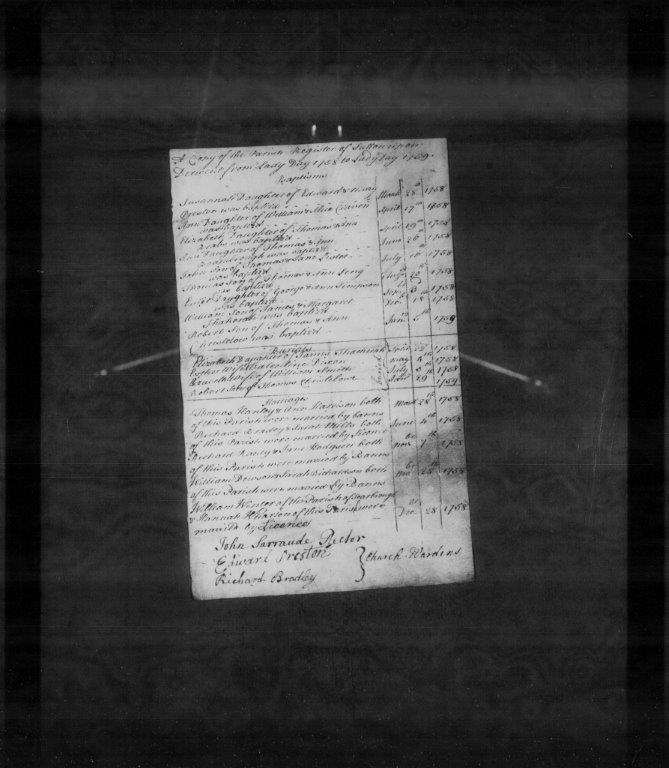 A Copy of the Parish Register of Sutton upon
Derwent from Lady Day 1758 to Lady Day 1759.
Baptisms
Susannah Daughter of Edward & Mary
Preston was baptized March 28 1758
Ann Daughter of William & Craven
was baptized April 17th 1758
Elizabeth Daughter of Thomas & Ann
was baptized April 19th 1758
Ann Daughter of Thomas & Ann
was baptized June 26 1758
John Son of Thomas & Jane Lister
was baptized July 10 1758
Thomas Son of Thomas & Ann Song
was baptized 1758
Daughter of George & Ann Simpson
was baptized 1758
William Son of James & Margaret
was baptized Dec. 18 1758
Robert Son of Thomas & Ann
was baptized Jan. 1759
Burials
Elizabeth Daughter of James 1758
Esther Wife of Valentine Dixon May 4 1758
Wife of William Smith July 1758
Robert Son of Thomas 29 1759
Marriages
Thomas Hanley & Ann Harrison both
of this Parish were married by banns 28th 1758
Richard Bradley & Sarah Mills both
of this Parish were married by Licence June 4th 1758
Richard & Jane Hodgson both
of this Parish were married by Banns Nov. 7th 1758
William Dowson & Sarah Richardson both
of this Parish were married by Banns 28 1758
William Winter of the Parish of
& Hannah of this Parish were
married by Licence Dec. 28 1758
John Sarraude Rector
Edward Preston
Richard Bradley } Church Wardens